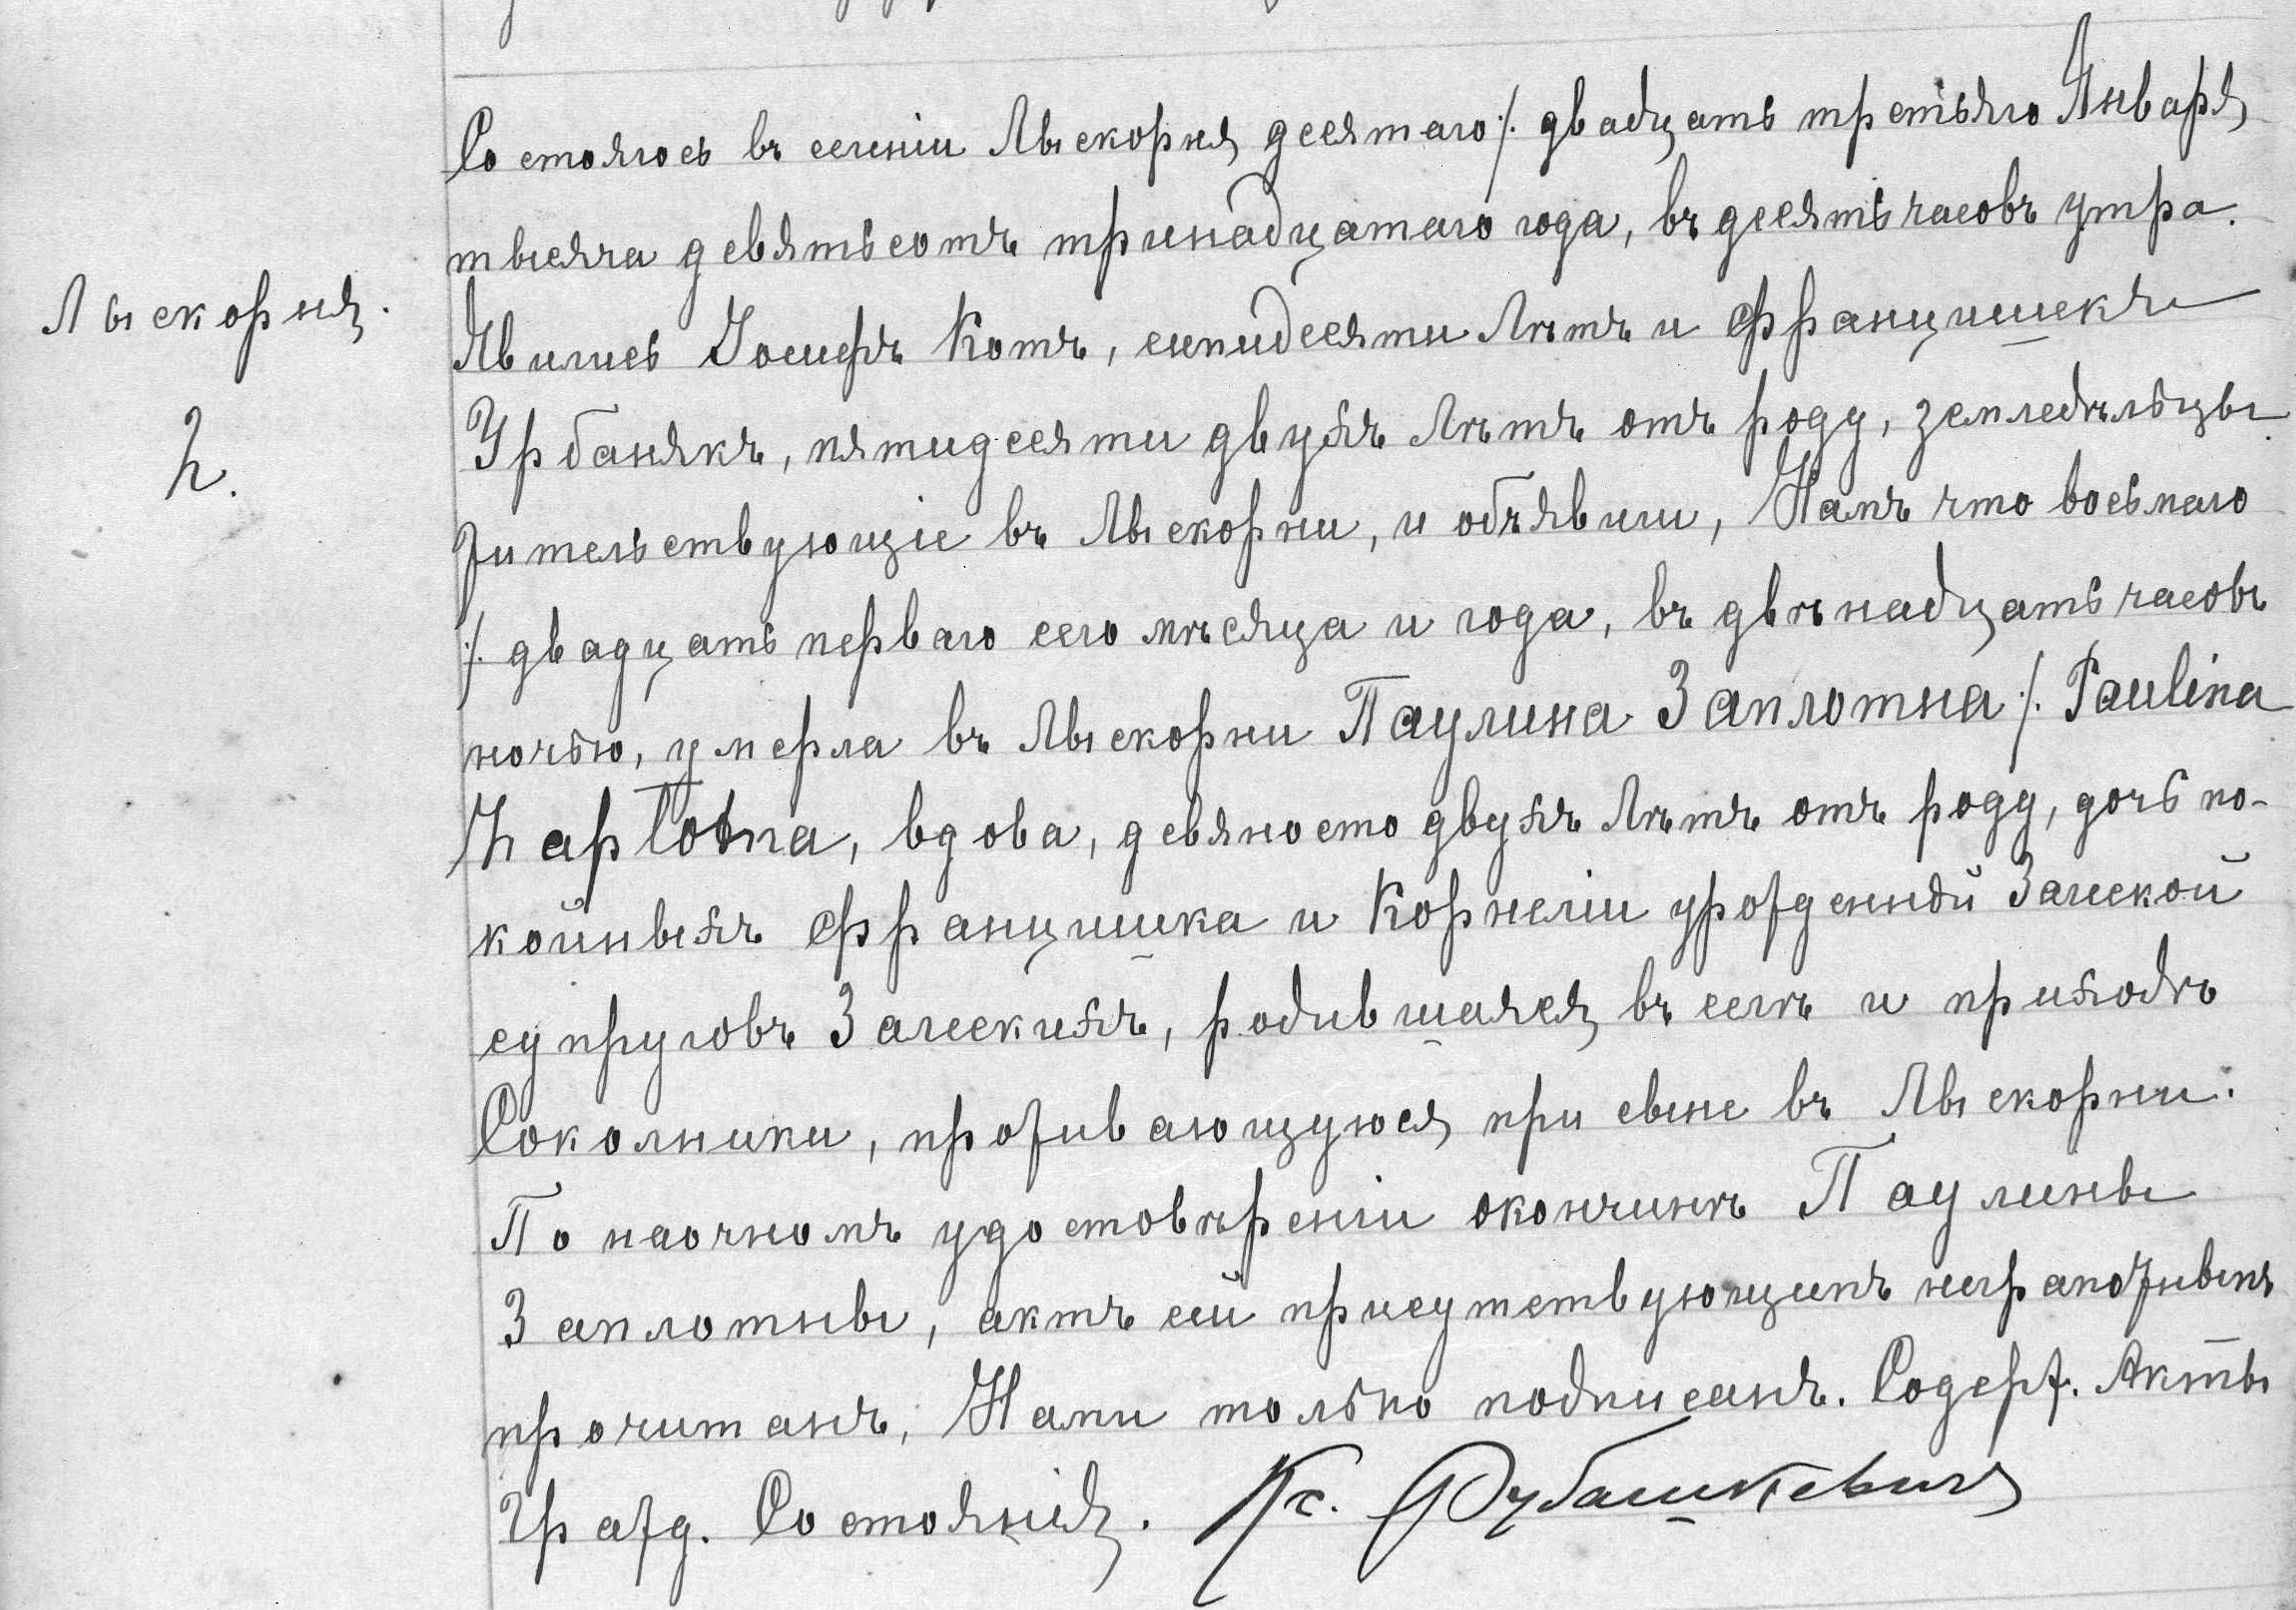 Лыскорня.
2.
Состоялось въ селеніи Лыскорня десятаго /. двадцать третьяго Января
тысяча девятьсотъ тринадцатаго года, въ десять часовъ утра.
Явились Іосифъ Котъ, семидесяти лѣтъ и Францишекъ
Урбанякъ, пятидесяти двухъ лѣтъ отъ роду, земледѣльцы
жительствующіе въ Лыскорни, и объявили, Намъ что восьмаго
/. двадцать перваго сего мѣсяца и года, въ двѣнадцать часовъ
ночью, умерла въ Лыскорни Паулина Заплотна /. Paulina
Zapłotna, вдова, девяносто двухъ лѣтъ отъ роду, дочь по-
койныхъ Францишка и Корнеліи урожденной Залеской
супруговъ Залескихъ, родившаяся въ селѣ и приходѣ
Соколники, проживающуюся при сыне въ Лыскорни.
По наочномъ удостовѣреніи окончинѣ Паулины
Заплотны, актъ сей присутствующимъ неграмотнымъ
прочитанъ, Нами только подписанъ. Содерж. Акты
Гражд. Состоянія. Кс.